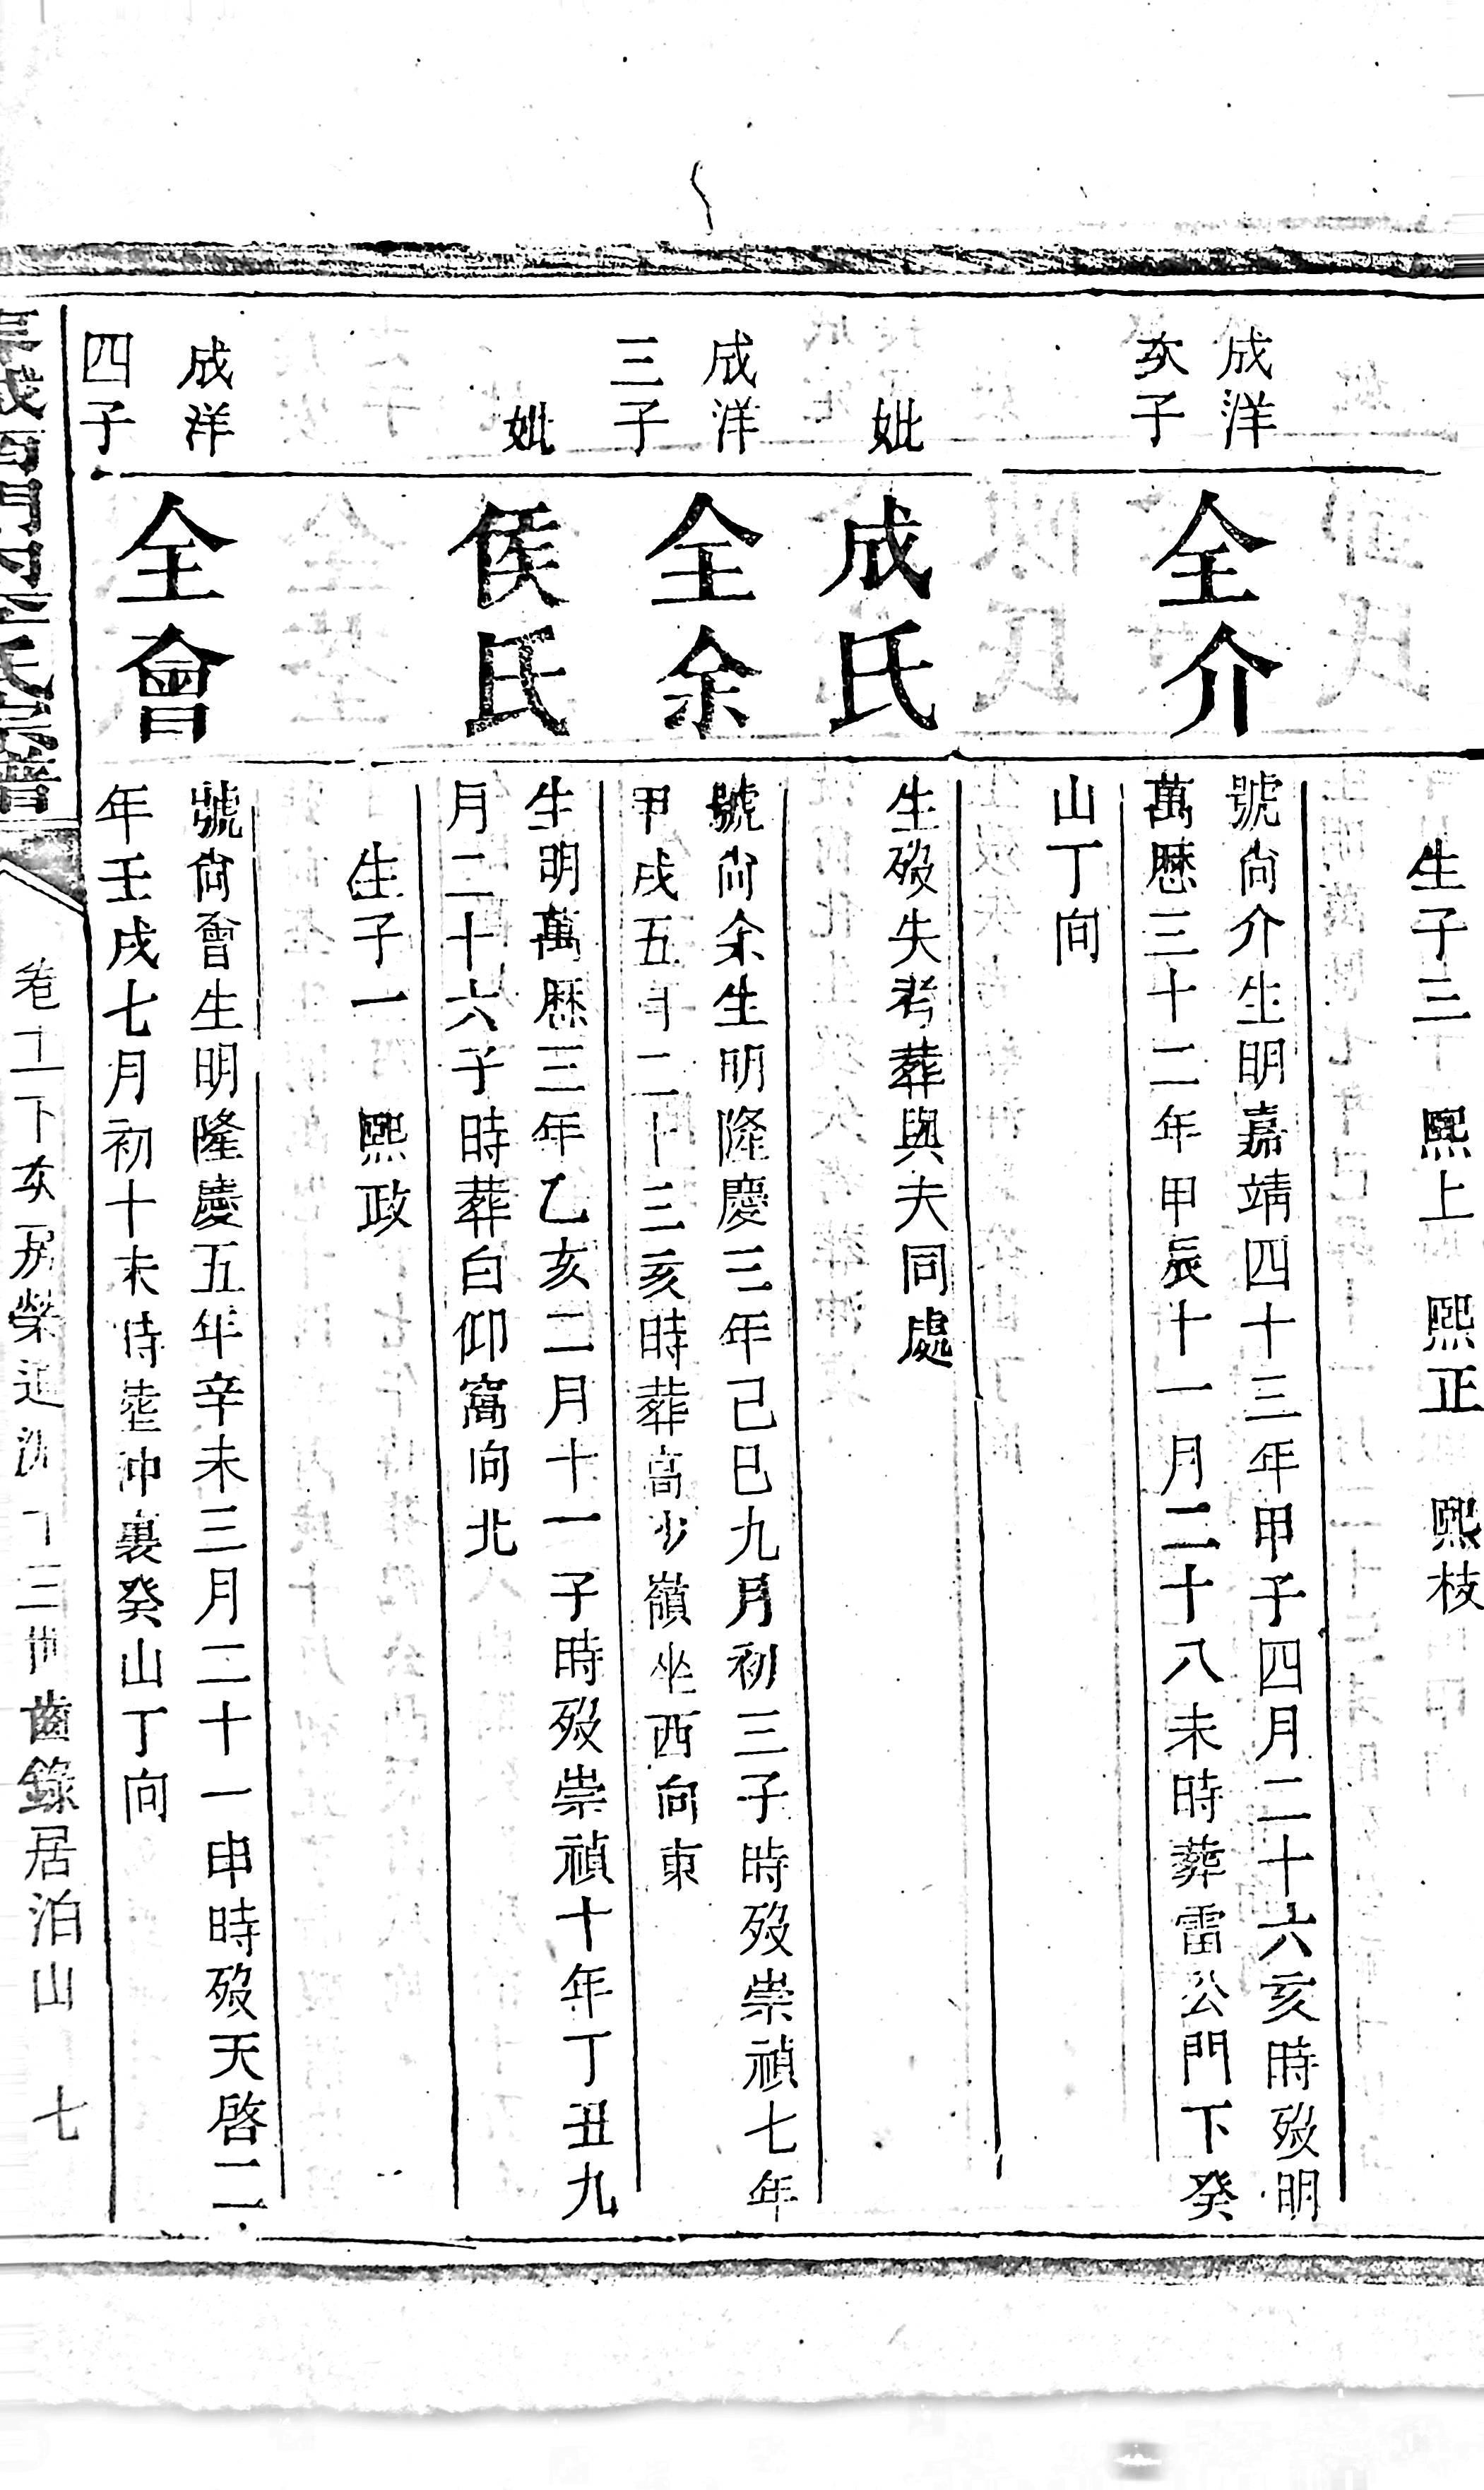 生子三 熙上 熙正 熙枝
成洋
次子
全介
號尙介生明嘉靖四十三年甲子四月二十六亥時歿明
萬歷三十二年甲辰十一月二十八未時葬雷公門下癸
山丁向
妣
成氏
生歿失考葬與夫同處
成洋
三子
全余
號尙余生明隆慶三年己巳九月初三子時歿崇禎七年
甲戌五月二十三亥時葬高少嶺坐西向東
妣
侯氏
生明萬歷三年乙亥二月十一子時歿崇禎十年丁丑九
月二十六子時葬白仰窩向北
生子一 熙政
成洋
四子
全會
號尙會生明隆慶五年辛未三月二十一申時歿天啓二
年壬戌七月初十未時葬冲裏癸山丁向
西門內李氏宗譜
卷 下次房榮 三世齒錄居泊山 七